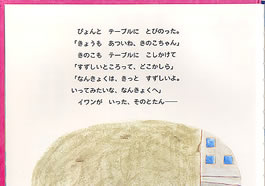 ぴょんと　テーブルに　とびのった。
「きょうも　あついね、きのこちゃん」
きのこも　テーブルに　こしかけて
「すずしいところって、どこかしら」
「なんきょくは、きっと　すずしいよ。
いってみたいな、なんきょくへ」
イワンが　いった、そのとたん——